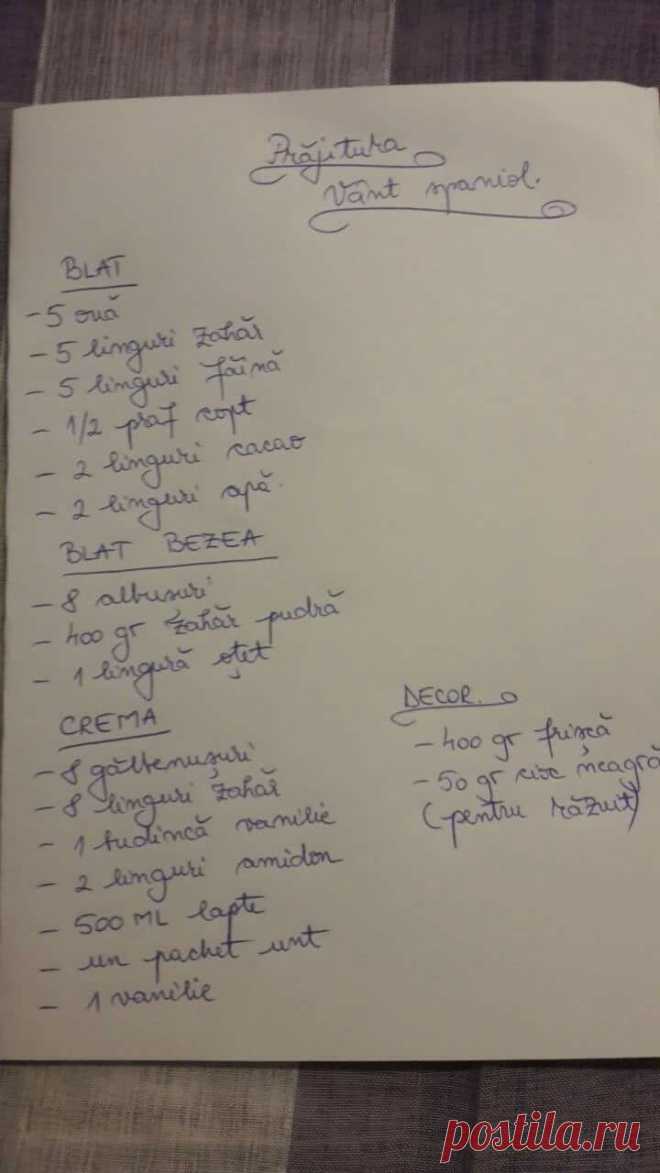 Prăjitura
Vânt spaniol.
BLAT
- 5 ouă
- 5 linguri zahăr
- 5 linguri făină
- 1/2 praf copt
- 2 linguri cacao
- 2 linguri apă.
BLAT BEZEA
- 8 albușuri
- 400 gr zahăr pudră
- 1 lingură oțet
CREMA
- 8 gălbenușuri
- 8 linguri zahăr
- 1 budincă vanilie
- 2 linguri amidon
- 500 ML lapte
- un pachet unt
- 1 vanilie
DECOR.
- 400 gr frișcă
- 50 gr cioc neagră
(pentru răzuit)
postila.ru